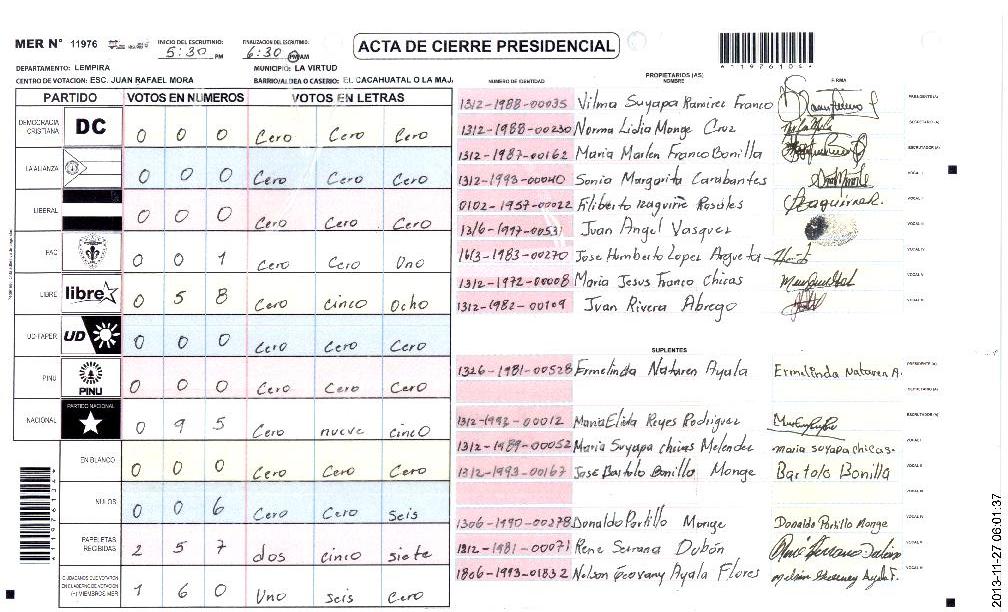 MER N° 11976
INICIO DEL ESCRUTINIO: 5:30 PM
FINALIZACION DEL ESCRUTINIO: 6:30 PM AM
ACTA DE CIERRE PRESIDENCIAL
4119761034
DEPARTAMENTO: LEMPIRA
MUNICIPIO: LA VIRTUD
CENTRO DE VOTACION: ESC. JUAN RAFAEL MORA
BARRIO/ALDEA O CASERIO: EL CACAHUATAL O LA MAJ
PARTIDO VOTOS EN NUMEROS VOTOS EN LETRAS
DEMOCRACIA CRISTIANA DC 0 0 0 Cero Cero Cero
LA ALIANZA 0 0 0 Cero Cero Cero
LIBERAL 0 0 0 Cero Cero Cero
PAC 0 0 1 Cero Cero Uno
LIBRE libre 0 5 8 Cero cinco Ocho
UD-FAPER UD 0 0 0 Cero Cero Cero
PINU PINU 0 0 0 Cero Cero Cero
NACIONAL PARTIDO NACIONAL 0 9 5 Cero nueve cinco
EN BLANCO 0 0 0 Cero Cero Cero
NULOS 0 0 6 Cero Cero seis
PAPELETAS RECIBIDAS 2 5 7 dos cinco siete
CIUDADANOS QUE VOTARON EN EL CUADERNO DE VOTACION (+) MIEMBROS MER 1 6 0 Uno seis Cero
PROPIETARIOS (AS)
NUMERO DE IDENTIDAD NOMBRE FIRMA
1312-1988-00035 Vilma Suyapa Ramirez Franco PRESIDENTE (A)
1312-1988-00230 Norma Lidia Monge Cruz SECRETARIO (A)
1312-1987-00162 Maria Marlen Franco Bonilla ESCRUTADOR (A)
1312-1993-00040 Sonia Margarita Carabantes VOCAL I
0102-1957-00022 Filiberto Izaguirre Rosales VOCAL II
Juan Angel Vasquez
1613-1983-00270 Jose Humberto Lopez Argueta VOCAL IV
1312-1972-00008 Maria Jesus Franco Chicas
1312-1982-00109 Juan Rivera Abrego
SUPLENTES
1326-1981-00528 Ermelinda Nataren Ayala Ermelinda Nataren A. PRESIDENTE (A)
SECRETARIO (A)
1312-1993-00012 Maria Elida Reyes Rodriguez ESCRUTADOR (A)
1312-1989-00052 Maria Suyapa chicas Melendez maria suyapa chicas. VOCAL I
1312-1993-00167 Jose Bartolo Bonilla Monge Bartolo Bonilla VOCAL II
1306-1990-00278 Donaldo Portillo Monge Donaldo Portillo Monge
1312-1981-00071 Rene Serrano Dubón
1806-1993-01832 Nelson Geovany Ayala Flores
2013-11-27 06:01:37